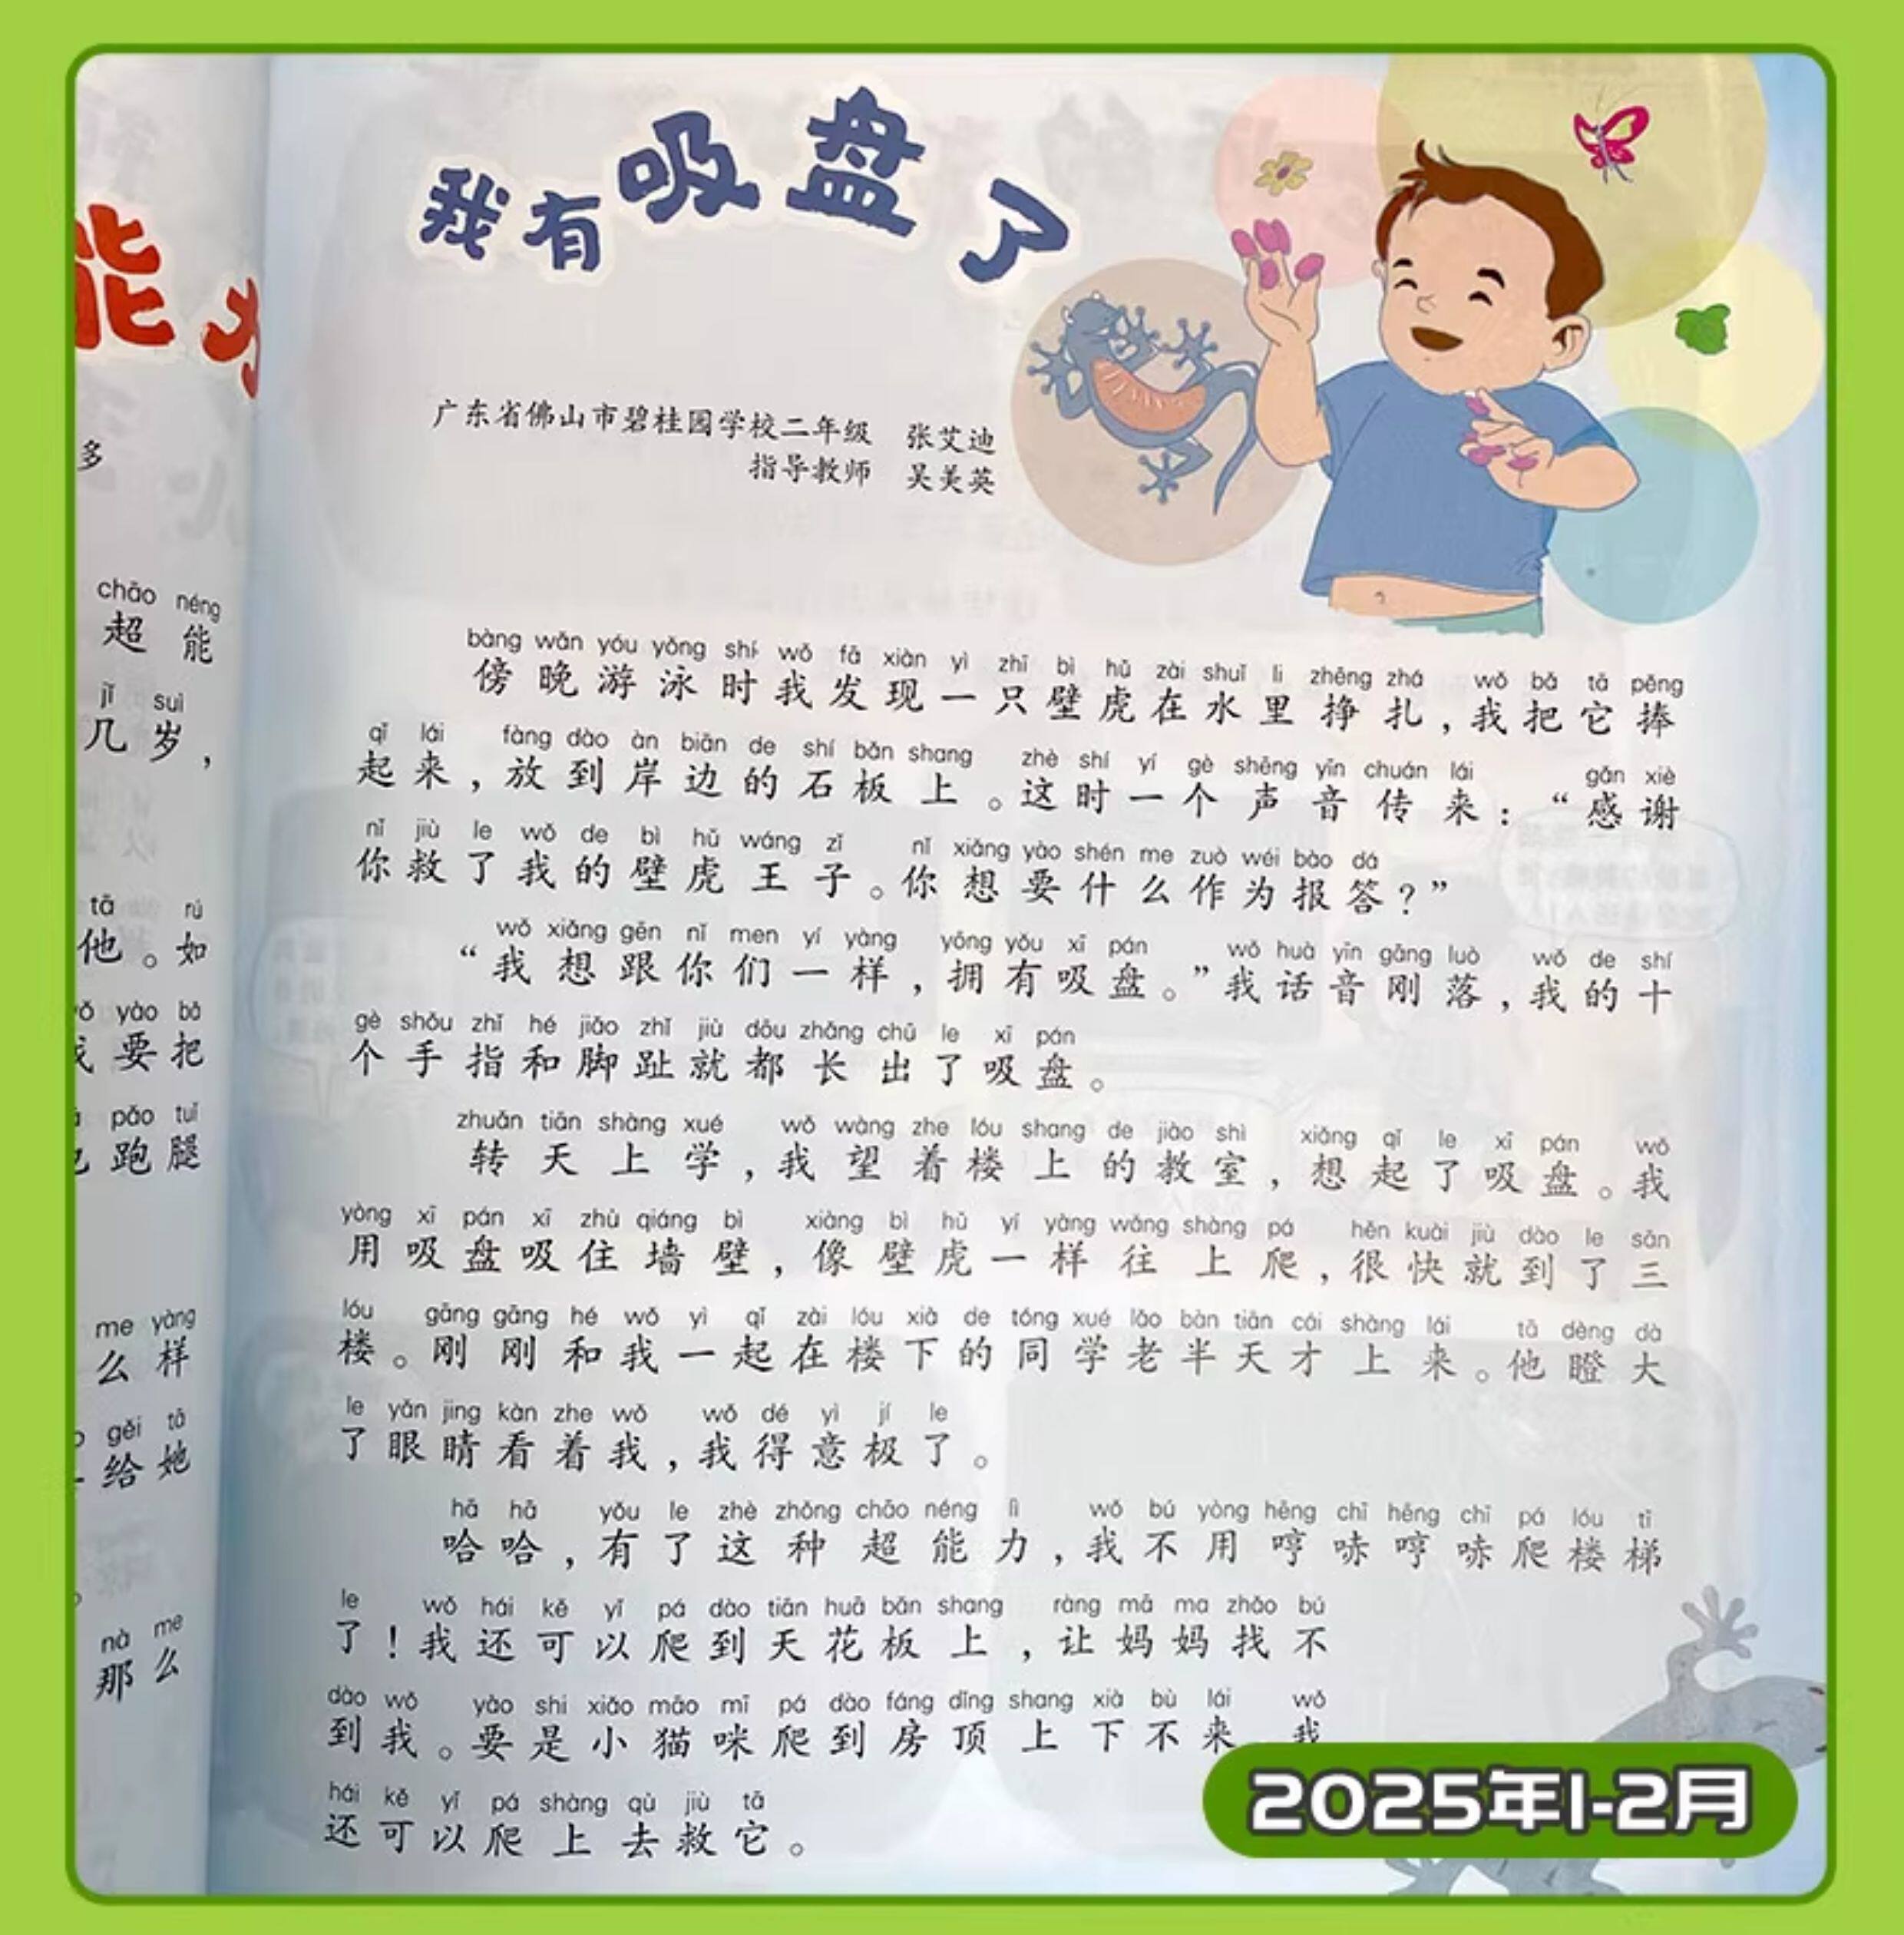 能力
多
chāo néng
超能
jǐ suì
几岁，
tā rú
他。如
yào bǎ
要把
pǎo tuǐ
跑腿
me yàng
么样
gěi tā
给她
nà me
那么
我有吸盘了
广东省佛山市碧桂园学校二年级 张艾迪
指导教师 吴美英
bàng wǎn yóu yǒng shí wǒ fā xiàn yì zhī bì hǔ zài shuǐ li zhēng zhá wǒ bǎ tā pěng
傍晚游泳时我发现一只壁虎在水里挣扎，我把它捧
qǐ lái fàng dào àn biān de shí bǎn shang zhè shí yí gè shēng yīn chuán lái gǎn xiè
起来，放到岸边的石板上。这时一个声音传来：“感谢
nǐ jiù le wǒ de bì hǔ wáng zǐ nǐ xiǎng yào shén me zuò wéi bào dá
你救了我的壁虎王子。你想要什么作为报答？”
wǒ xiǎng gēn nǐ men yí yàng yōng yǒu xī pán wǒ huà yīn gāng luò wǒ de shí
“我想跟你们一样，拥有吸盘。”我话音刚落，我的十
gè shǒu zhǐ hé jiǎo zhǐ jiù dōu zhǎng chū le xī pán
个手指和脚趾就都长出了吸盘。
zhuǎn tiān shàng xué wǒ wàng zhe lóu shang de jiào shì xiǎng qǐ le xī pán wǒ
转天上学，我望着楼上的教室，想起了吸盘。我
yòng xī pán xī zhù qiáng bì xiàng bì hǔ yí yàng wǎng shàng pá hěn kuài jiù dào le sān
用吸盘吸住墙壁，像壁虎一样往上爬，很快就到了三
lóu gāng gāng hé wǒ yì qǐ zài lóu xià de tóng xué lǎo bàn tiān cái shàng lái tā dèng dà
楼。刚刚和我一起在楼下的同学老半天才上来。他瞪大
le yǎn jing kàn zhe wǒ wǒ dé yì jí le
了眼睛看着我，我得意极了。
hā hā yǒu le zhè zhǒng chāo néng lì wǒ bú yòng hēng chī hēng chī pá lóu tī
哈哈，有了这种超能力，我不用哼哧哼哧爬楼梯
le wǒ hái kě yǐ pá dào tiān huā bǎn shang ràng mā ma zhǎo bú
了！我还可以爬到天花板上，让妈妈找不
dào wǒ yào shi xiǎo māo mī pá dào fáng dǐng shang xià bù lái wǒ
到我。要是小猫咪爬到房顶上下不来 我
hái kě yǐ pá shàng qù jiù tā
还可以爬上去救它。
2025年1-2月